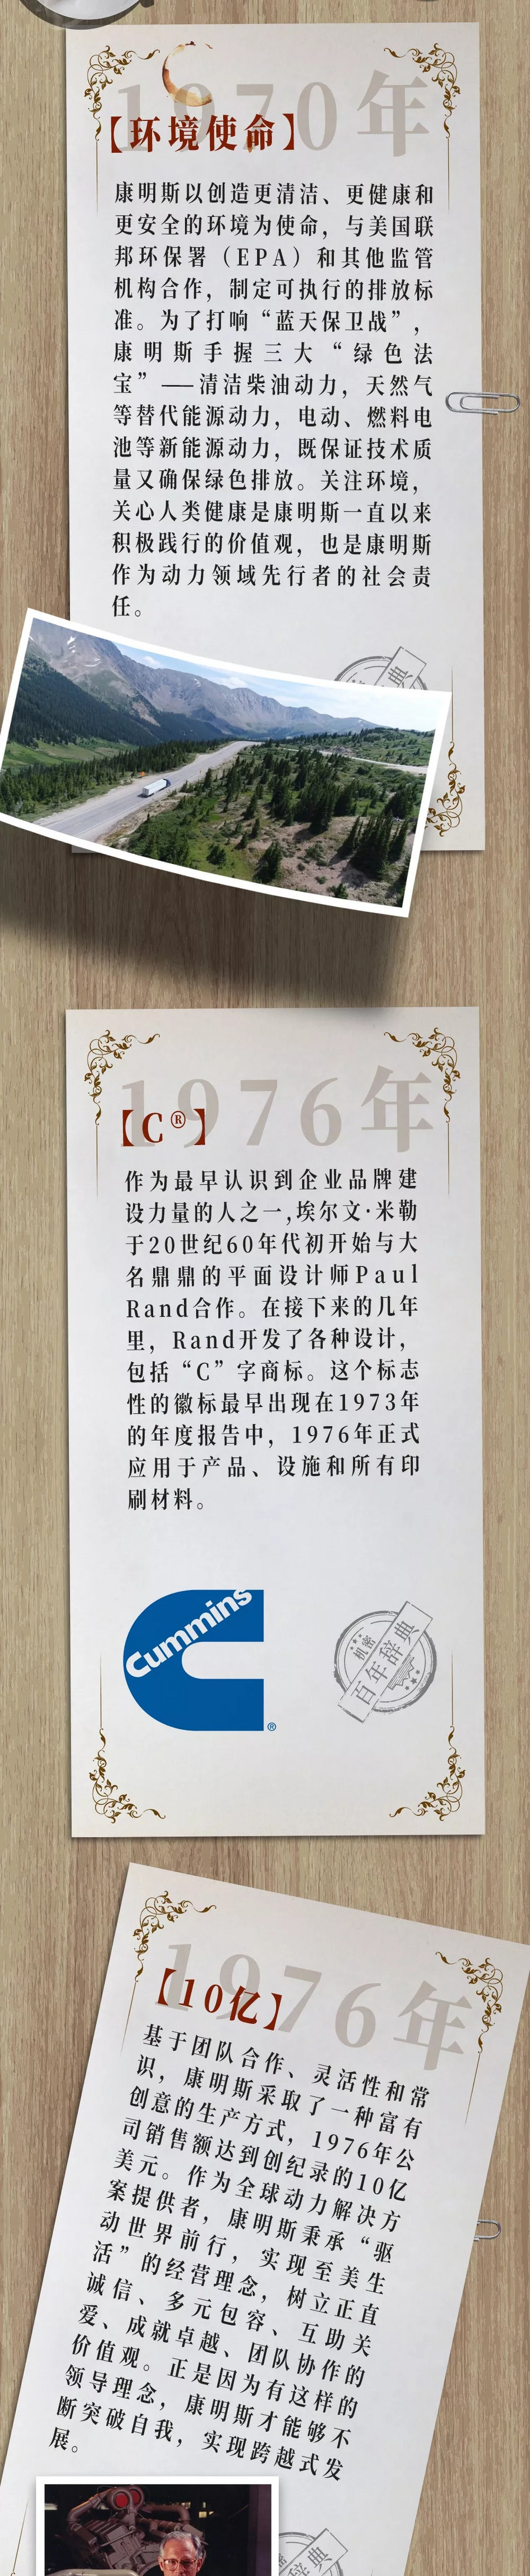 1970年
【环境使命】
康明斯以创造更清洁、更健康和
更安全的环境为使命，与美国联
邦环保署（EPA）和其他监管
机构合作，制定可执行的排放标
准。为了打响“蓝天保卫战”，
康明斯手握三大“绿色法
宝”——清洁柴油动力，天然气
等替代能源动力，电动、燃料电
池等新能源动力，既保证技术质
量又确保绿色排放。关注环境，
关心人类健康是康明斯一直以来
积极践行的价值观，也是康明斯
作为动力领域先行者的社会责
任。
辞典
1976年
【C®】
作为最早认识到企业品牌建
设力量的人之一,埃尔文·米勒
于20世纪60年代初开始与大
名鼎鼎的平面设计师Paul
Rand合作。在接下来的几年
里，Rand开发了各种设计，
包括“C”字商标。这个标志
性的徽标最早出现在1973年
的年度报告中，1976年正式
应用于产品、设施和所有印
刷材料。
Cummins
®
机密
百年辞典
1976年
【10亿】
基于团队合作、灵活性和常
识，康明斯采取了一种富有
创意的生产方式，1976年公
司销售额达到创纪录的10亿
美元。作为全球动力解决方
案提供者，康明斯秉承“驱
动世界前行，实现至美生
活”的经营理念，树立正直
诚信、多元包容、互助关
爱、成就卓越、团队协作的
价值观。正是因为有这样的
领导理念，康明斯才能够不
断突破自我，实现跨越式发
展。
辞典